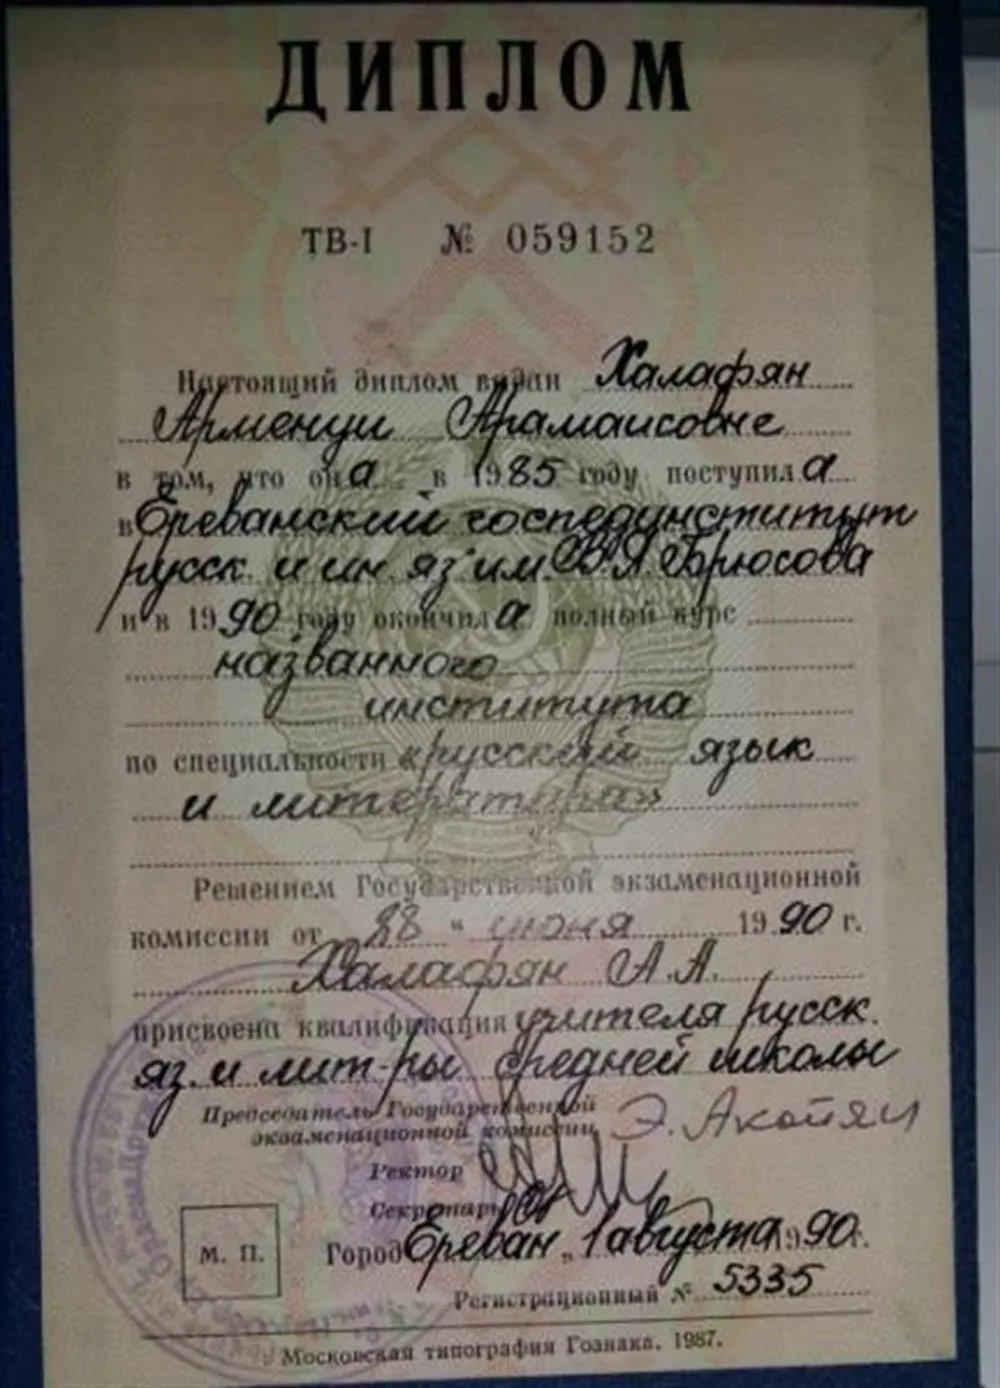 ДИПЛОМ
ТВ-I № 059152
Настоящий диплом выдан Халафян
Арменуи Арамаисовне
в том, что она в 1985 году поступила
в Ереванский госпединститут
русск. и ин. яз. им. В.Я. Брюсова
и в 1990 году окончила полный курс
названного
института
по специальности «русский язык
и литература»
Решением Государственной экзаменационной
комиссии от „28“ июня 1990 г.
Халафян А.А.
присвоена квалификация учителя русск.
яз. и лит-ры средней школы
Председатель Государственной Э. Акопян
экзаменационной комиссии
Ректор
Секретарь
М. П.
Город Ереван „1 августа 1990 г.
Регистрационный № 5335
Московская типография Гознака. 1987.